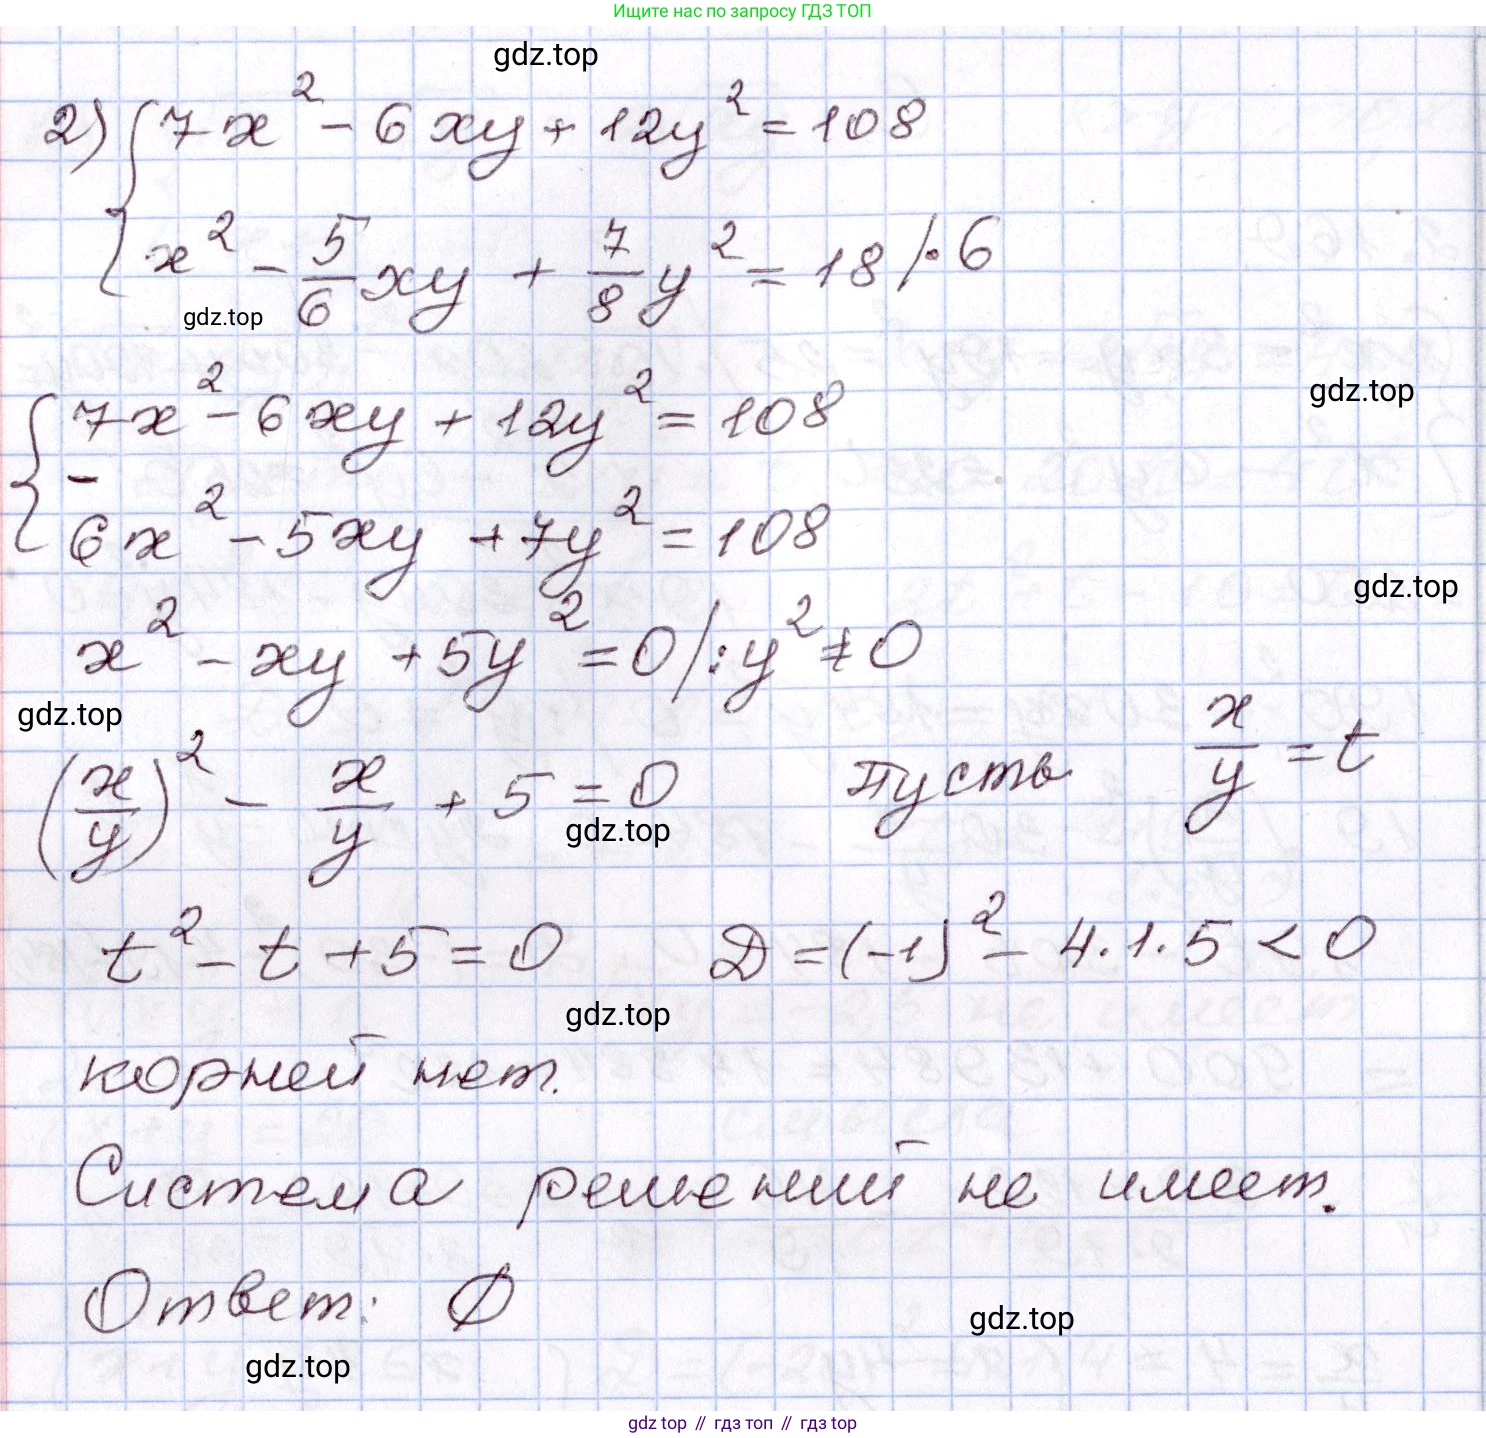 Ищите нас по запросу ГДЗ ТОП
gdz.top
2) { 7x² - 6xy + 12y² = 108
x² - 5/6 xy + 7/8 y² = 18 / · 6
gdz.top
{ 7x² - 6xy + 12y² = 108
gdz.top
-
6x² - 5xy + 7y² = 108
gdz.top
x² - xy + 5y² = 0 / : y² ≠ 0
gdz.top
(x/y)² - x/y + 5 = 0 пусть x/y = t
gdz.top
t² - t + 5 = 0 D = (-1)² - 4·1·5 < 0
gdz.top
корней нет.
Система решений не имеет.
Ответ: Ø
gdz.top
gdz.top
gdz top // гдз топ // гдз top